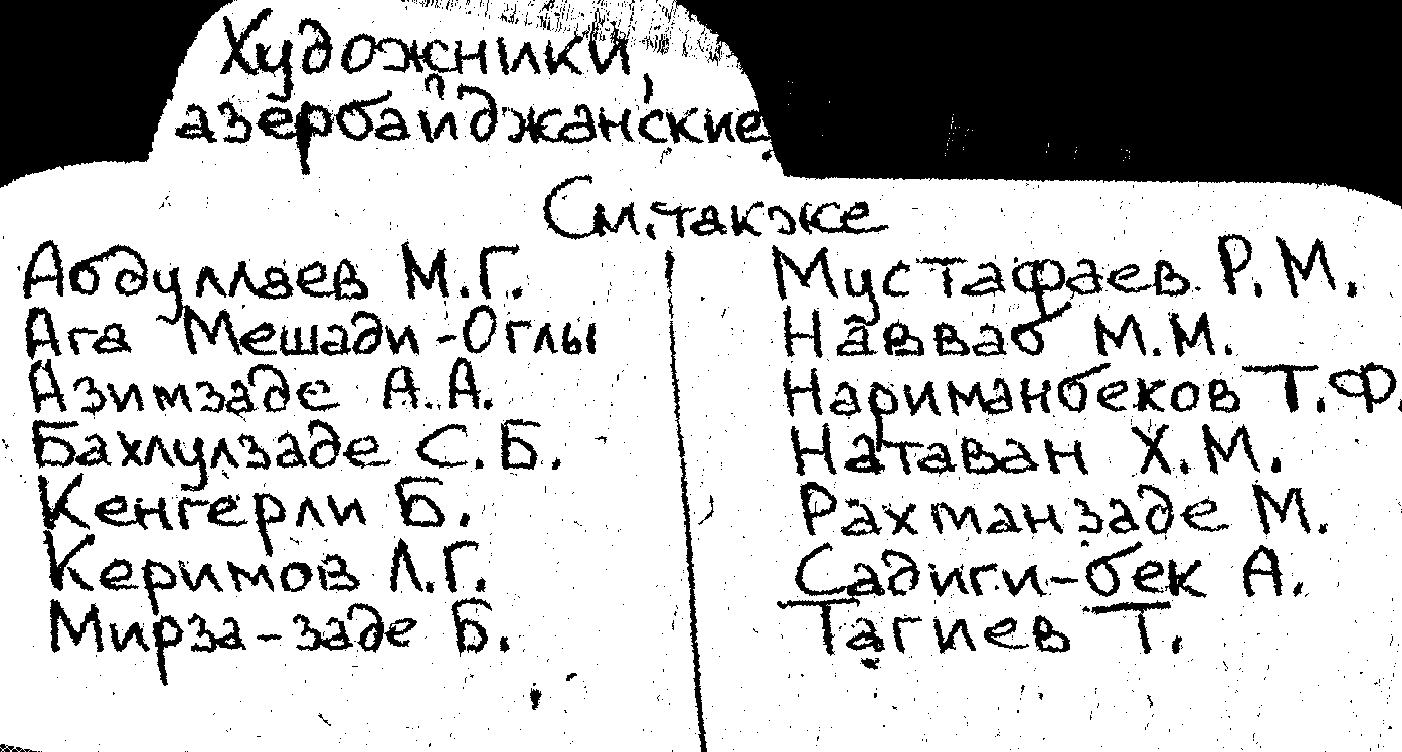 Художники,
азербайджанские
См. также
Абдуллаев М.Г.
Ага Мешади-Оглы
Азимзаде А.А.
Бахлулзаде С.Б.
Кенгерли Б.
Керимов Л.Г.
Мирза-заде Б.
Мустафаев Р.М.
Навваб М.М.
Нариманбеков Т.Ф.
Натаван Х.М.
Рахманзаде М.
Садиги-бек А.
Тагиев Т.